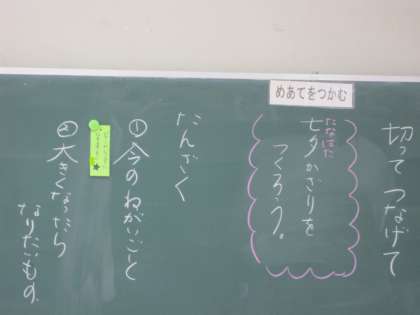 めあてをつかむ
切って つなげて
たなばた
七夕かざりを
つくろう。
たんざく
①今のねがいごと
②大きくなったら
なりたいもの